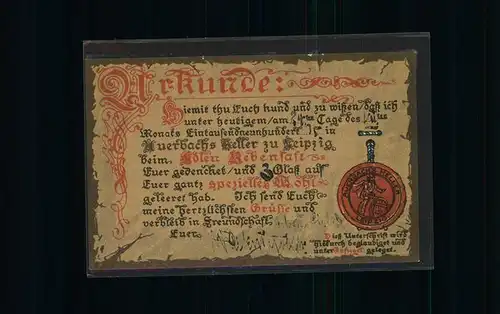 Urkunde:
Hiemit thu Euch kund und zu wißen, daß ich
unter heutigem/am Tage des
Monats Eintausendneunhundert 15 in
Auerbachs Keller zu Leipzig
beim Edlen Rebensaft
Euer gedenket und 3 Glaß auf
Euer ganz spezielles Wohl
geleeret hab. Ich send Euch
meine hertzlichsten Grüße und
verbleib in Freundschaft
Euer
AUERBACHS KELLER
LEIPZIG
Dieß Unterschrift wird
hiedurch beglaubiget und
unter Insiegel geleget.